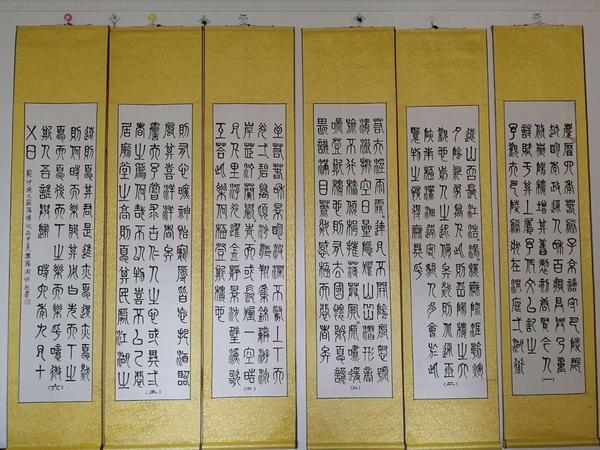 慶曆四年春滕子京謫守巴陵郡
越明年政通人和百廢具興乃重
修岳陽樓增其舊制刻唐賢今人
詩賦于其上屬予作文以記之
予觀夫巴陵勝狀在洞庭一湖銜
(一)
遠山吞長江浩浩湯湯橫無際涯朝暉
夕陰氣象萬千此則岳陽樓之大
觀也前人之述備矣然則北通巫
峽南極瀟湘遷客騷人多會於此
覽物之情得無異乎
(二)
若夫霪雨霏霏連月不開陰風怒號
濁浪排空日星隱曜山岳潛形商
旅不行檣傾楫摧薄暮冥冥虎嘯猿
啼登斯樓也則有去國懷鄉憂讒
畏譏滿目蕭然感極而悲者矣
(三)
至若春和景明波瀾不驚上下天
光一碧萬頃沙鷗翔集錦鱗游泳
岸芷汀蘭郁郁青青而或長煙一空皓
月千里浮光躍金靜影沉璧漁歌
互答此樂何極登斯樓也
(四)
則有心曠神怡寵辱偕忘把酒臨
風其喜洋洋者矣
嗟夫予嘗求古仁人之心或異二
者之爲何哉不以物喜不以己悲
居廟堂之高則憂其民處江湖之
(五)
遠則憂其君是進亦憂退亦憂然
則何時而樂耶其必曰先天下之
憂而憂後天下之樂而樂乎噫微
斯人吾誰與歸 時六年九月十
五日
(六)